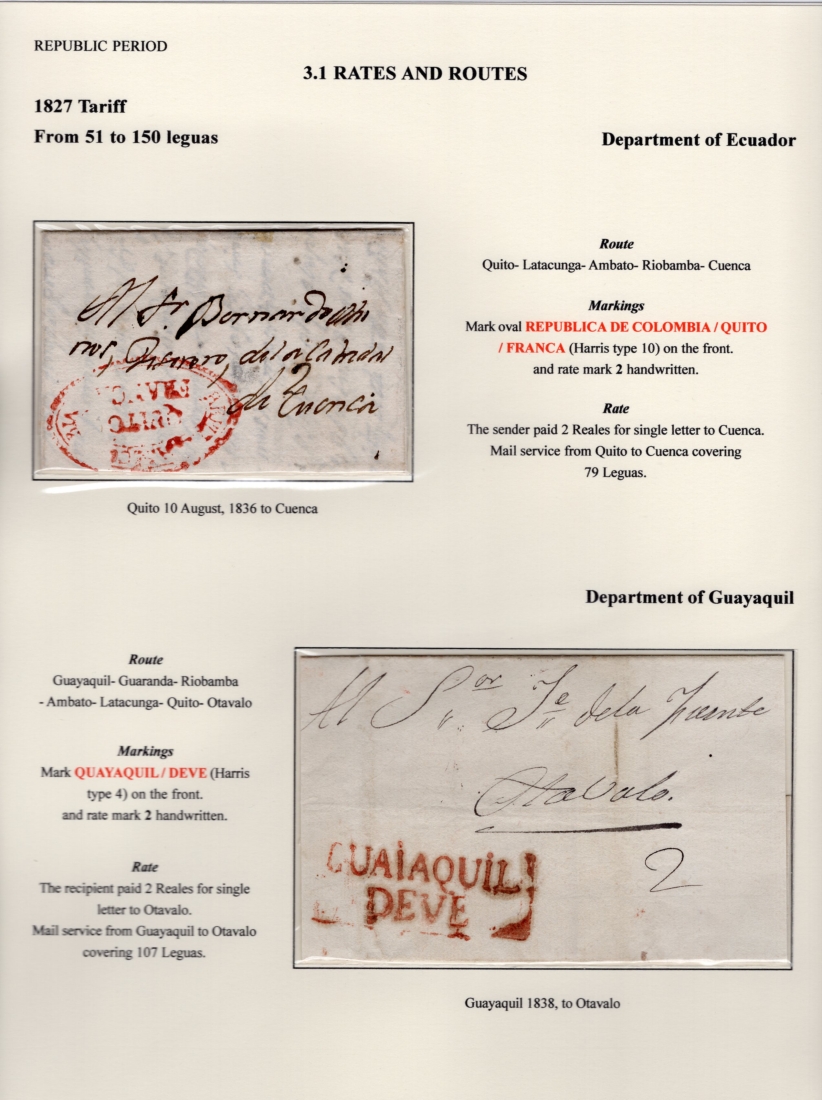 REPUBLIC PERIOD
3.1 RATES AND ROUTES
1827 Tariff
From 51 to 150 leguas
Department of Ecuador
Al Sr Bernardo
de Cuenca
2
FRANCA
QUITO
Route
Quito- Latacunga- Ambato- Riobamba- Cuenca
Markings
Mark oval REPUBLICA DE COLOMBIA / QUITO
/ FRANCA (Harris type 10) on the front.
and rate mark 2 handwritten.
Rate
The sender paid 2 Reales for single letter to Cuenca.
Mail service from Quito to Cuenca covering
79 Leguas.
Quito 10 August, 1836 to Cuenca
Department of Guayaquil
Route
Guayaquil- Guaranda- Riobamba
- Ambato- Latacunga- Quito- Otavalo
Markings
Mark QUAYAQUIL / DEVE (Harris
type 4) on the front.
and rate mark 2 handwritten.
Rate
The recipient paid 2 Reales for single
letter to Otavalo.
Mail service from Guayaquil to Otavalo
covering 107 Leguas.
Al Sor Je dela Fuente
Otavalo.
2
GUAIAQUIL
DEVE
Guayaquil 1838, to Otavalo